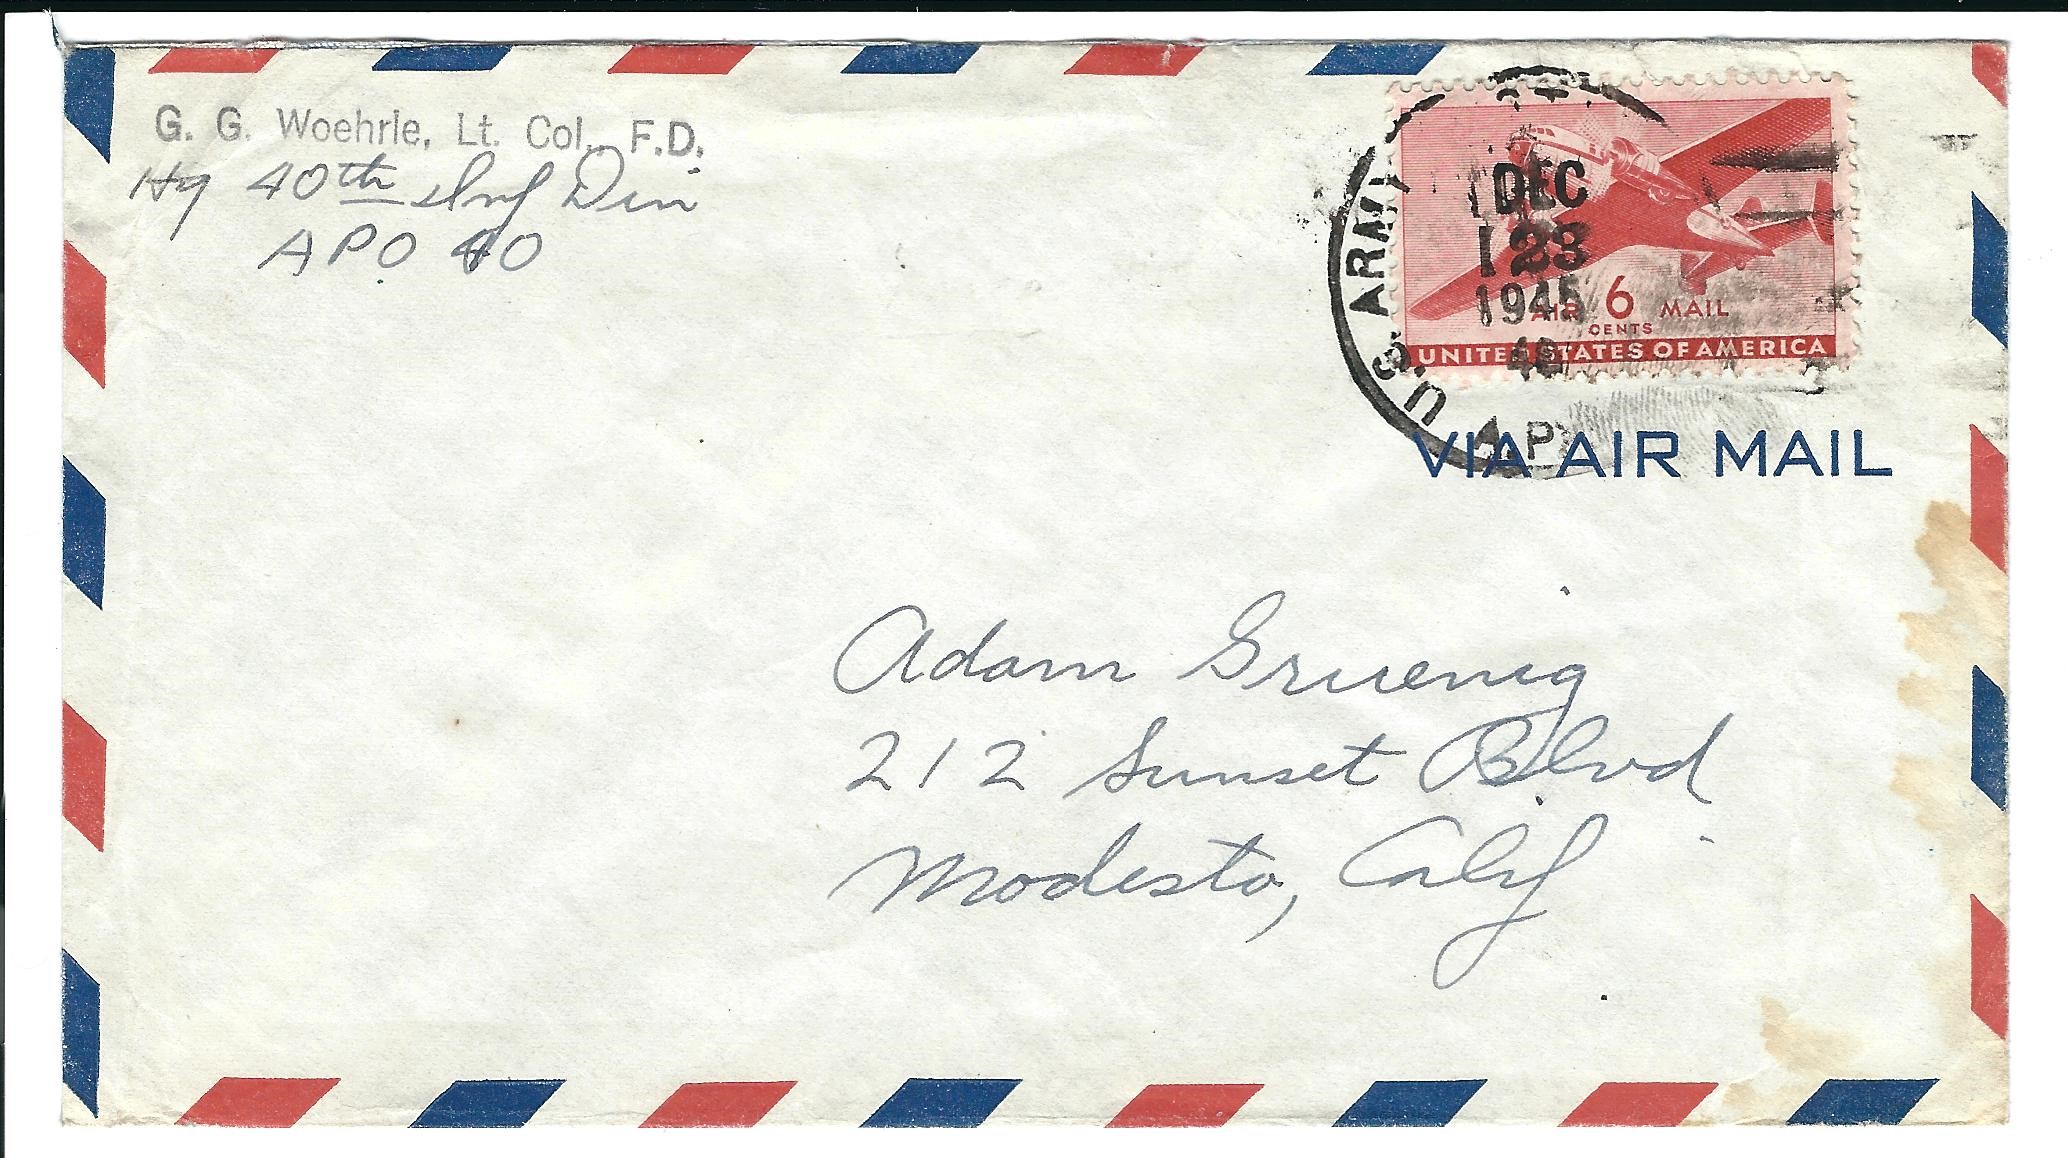 G. G. Woehrle, Lt. Col., F.D.
Hq 40th Inf Div
APO 40
U.S. ARMY
DEC
23
1945
40
AIR 6 MAIL
CENTS
UNITED STATES OF AMERICA
VIA AIR MAIL
Adam Gruenig
212 Sunset Blvd
Modesto, Calif